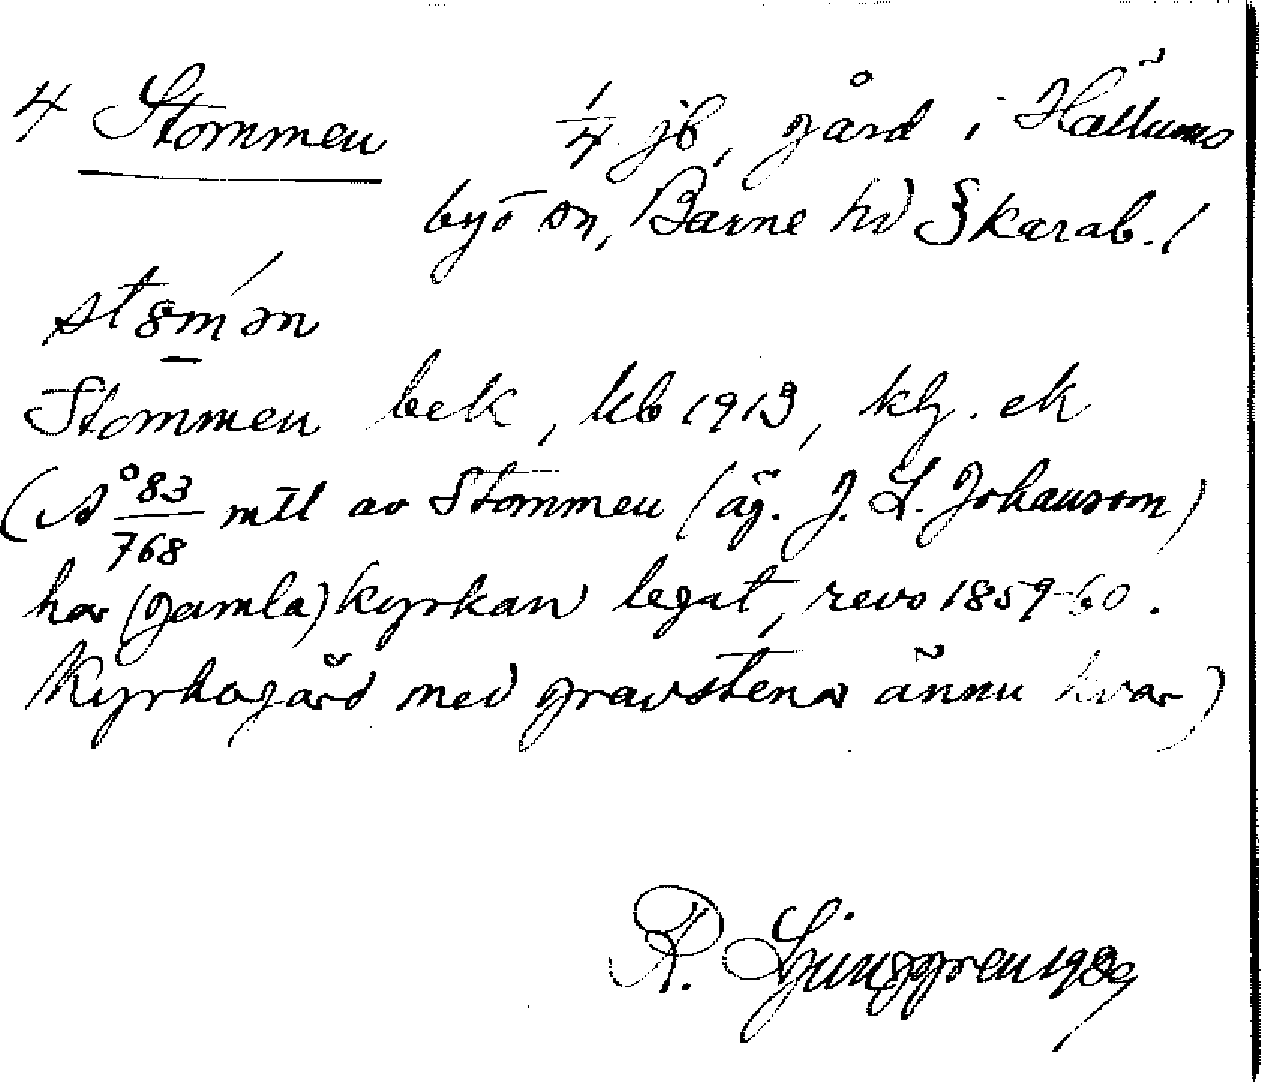 4 Stommen 1/4 jb, gård i Hällums
by o sn, Barne hd Skarab. l
st8m´ən
Stommen bek, kb 1913, klg. ek
(Å 83/768 mtl av Stommen (äg. J. L. Johansson)
har (gamla) kyrkan legat, revs 1859-60.
Kyrkogård med gravstenar ännu kvar)
R. Ljunggren 1929